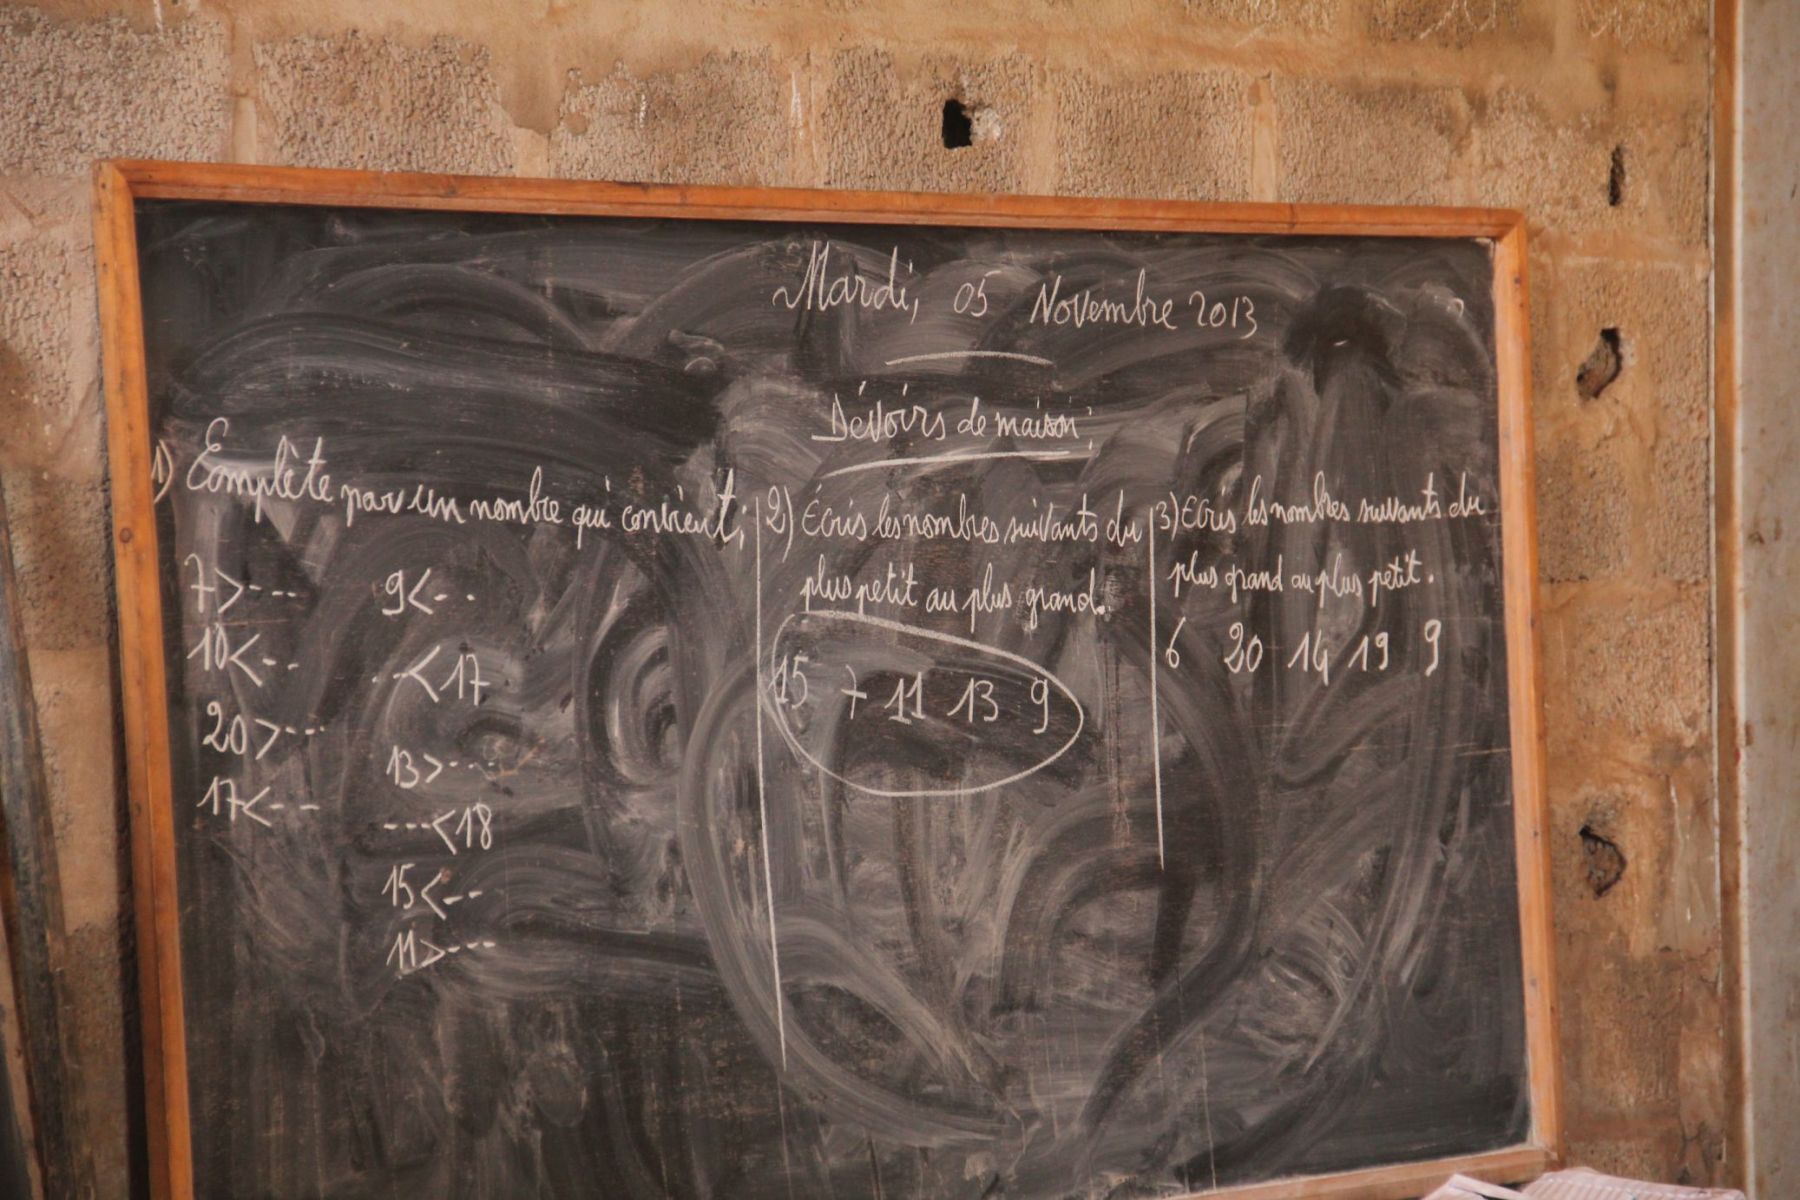 Mardi, 05 Novembre 2013
Dévoirs de maison:
1) Complète par un nombre qui convient;
7>---
10<--
20>---
17<---
9<--
.<17
13>----
---<18
15<--
11>---
2) Écris les nombres suivants du
plus petit au plus grand.
15 7 11 13 9
3) Ecris les nombres suivants du
plus grand au plus petit.
6 20 14 19 9